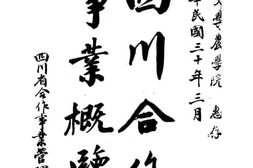 學農學院 惠存
華民國三十年三月
四川合作
事業概覽
四川省合作事業管